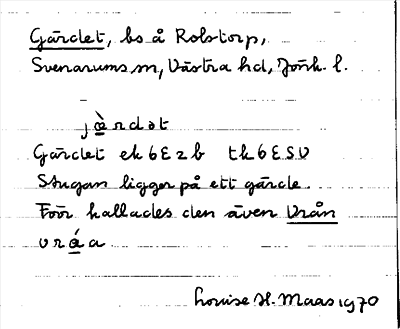 Gärdet, bs å Rolstorp,
Svenarums sn, Västra hd, Jönk. l.
jæ̀rdət
Gärdet ek 6E2b tk 6ESV
Stugan ligger på ett gärde.
Förr kallades den även Vrån
vrá̱a
Louise H. Maas 1970